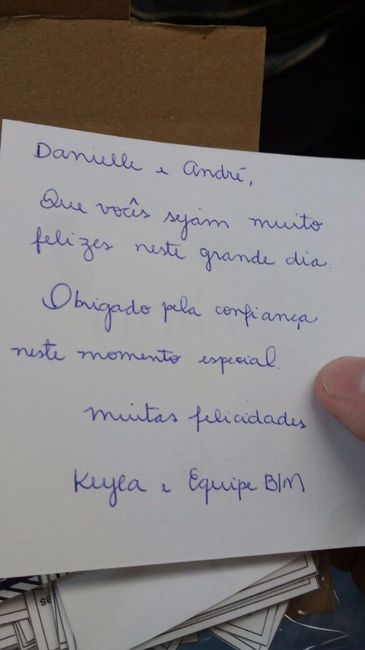 Danielle e André,
Que vocês sejam muito
felizes neste grande dia.
Obrigado pela confiança
neste momento especial.
Muitas felicidades
Keyla e Equipe BIM